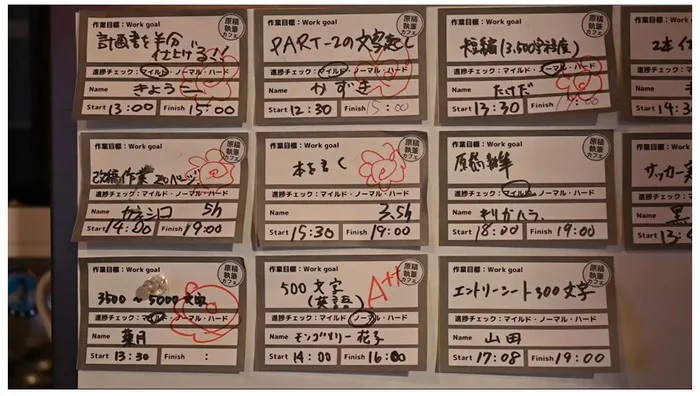 作業目標：Work goal
原稿執筆カフェ
計画書を半分
仕上げる!!
進捗チェック：マイルド・ノーマル・ハード
Name きょうこ
Start 13:00 Finish 15:00
作業目標：Work goal
原稿執筆カフェ
PART-2の文字起こし
進捗チェック：マイルド・ノーマル・ハード
Name かずき
Start 12:30 Finish 15:00
作業目標：Work goal
原稿執筆カフェ
短編(3,500字程度)
進捗チェック：マイルド・ノーマル・ハード
Name たけだ
Start 13:30 Finish 17:00
作業目標：Work goal
原稿執筆カフェ
改稿作業 20ページ
進捗チェック：マイルド・ノーマル・ハード
Name カネシロ 5h
Start 14:00 Finish 19:00
作業目標：Work goal
原稿執筆カフェ
本を書く
進捗チェック：マイルド・ノーマル・ハード
Name 3.5h
15:30 19:00
作業目標：Work goal
原稿執筆カフェ
原稿執筆
進捗チェック：マイルド・ノーマル・ハード
Name
Start 18:00 Finish 19:00
作業目標：Work goal
3500～5000文字
進捗チェック：マイルド・ノーマル・ハード
Name 葉月
Start 13:30 Finish :
作業目標：Work goal
原稿執筆カフェ
500文字
(英語)
A++
進捗チェック：マイルド・ノーマル・ハード
Name モンゴメリー 花子
Start 14:00 Finish 16:00
作業目標：Work goal
原稿執筆カフェ
エントリーシート300文字
進捗チェック：マイルド・ノーマル・ハード
Name 山田
Start 17:08 Finish 19:00
作業目標：Work
進捗チェック：マイ
Name
Start
作業目標：Work
サッカー
進捗チェック：マイ
Name 黒
Start